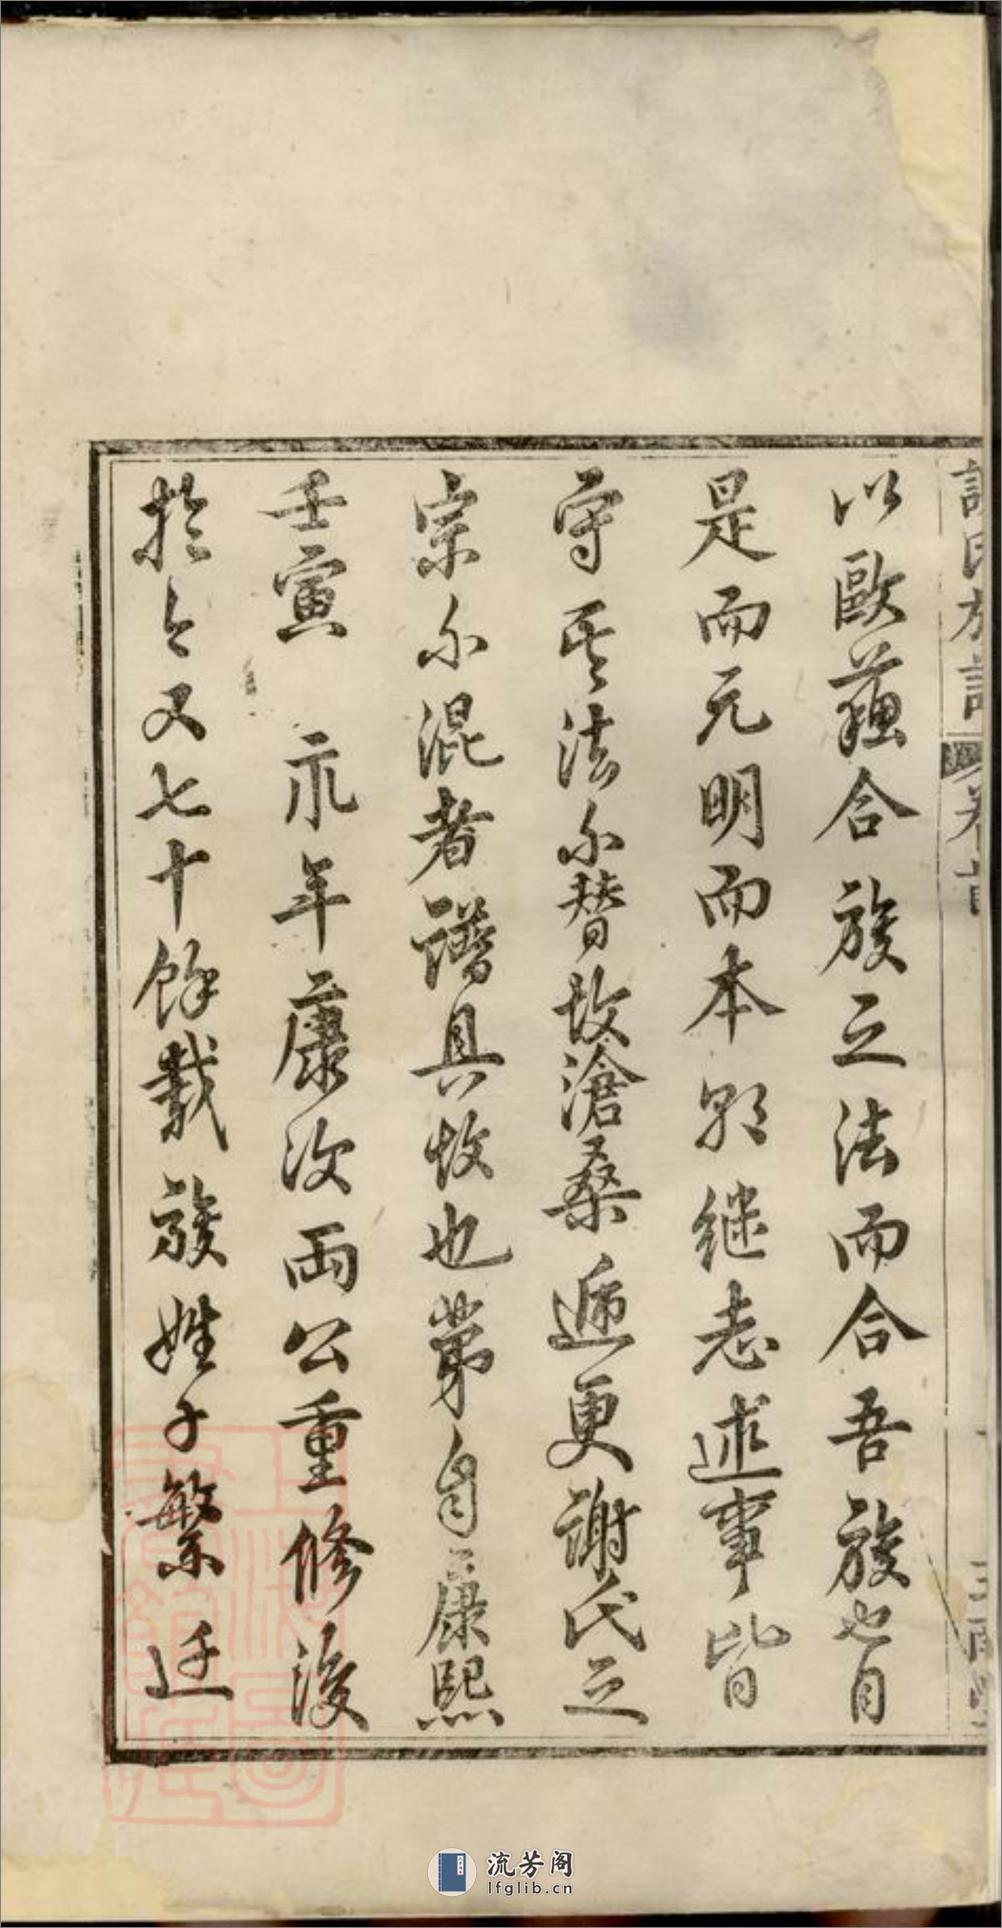 謝氏族譜 卷首
以歐蘇合族之法而合吾族也自
是而元明而本朝繼志述事皆
守其法不替故滄桑遞更謝氏之
宗不混者譜具故也第自康熙
壬寅 示年康次兩公重修後
於今又七十餘載族姓子繁遷
三
上海圖書館藏
流芳阁
lfglib.cn